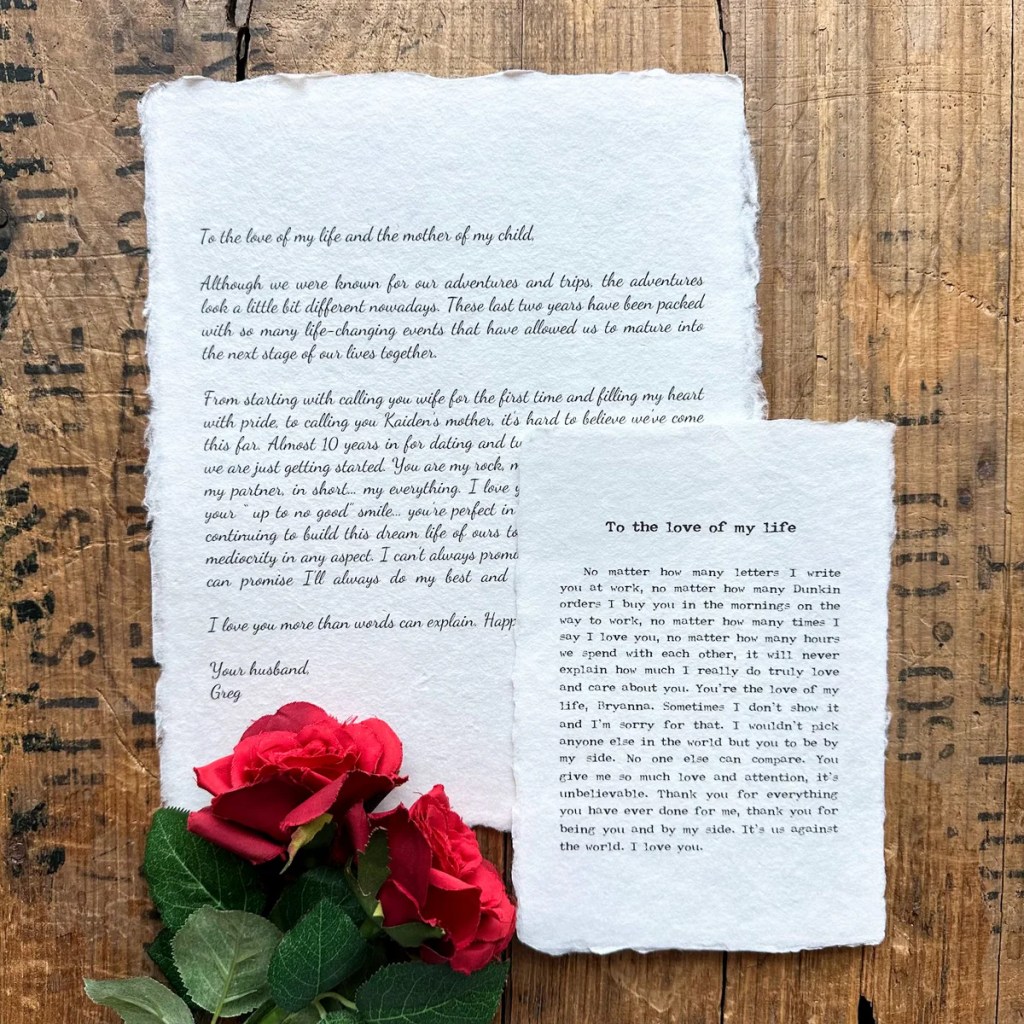 To the love of my life and the mother of my child,
Although we were known for our adventures and trips, the adventures
look a little bit different nowadays. These last two years have been packed
with so many life-changing events that have allowed us to mature into
the next stage of our lives together.
From starting with calling you wife for the first time and filling my heart
with pride, to calling you Kaiden's mother, it's hard to believe we've come
this far. Almost 10 years in for dating and
we are just getting started. You are my rock,
my partner, in short... my everything. I love
your " up to no good" smile... you're perfect in
continuing to build this dream life of ours
mediocrity in any aspect. I can't always
can promise I'll always do my best and
I love you more than words can explain.
Your husband,
Greg
To the love of my life
No matter how many letters I write
you at work, no matter how many Dunkin
orders I buy you in the mornings on the
way to work, no matter how many times I
say I love you, no matter how many hours
we spend with each other, it will never
explain how much I really do truly love
and care about you. You're the love of my
life, Bryanna. Sometimes I don't show it
and I'm sorry for that. I wouldn't pick
anyone else in the world but you to be by
my side. No one else can compare. You
give me so much love and attention, it's
unbelievable. Thank you for everything
you have ever done for me, thank you for
being you and by my side. It's us against
the world. I love you.